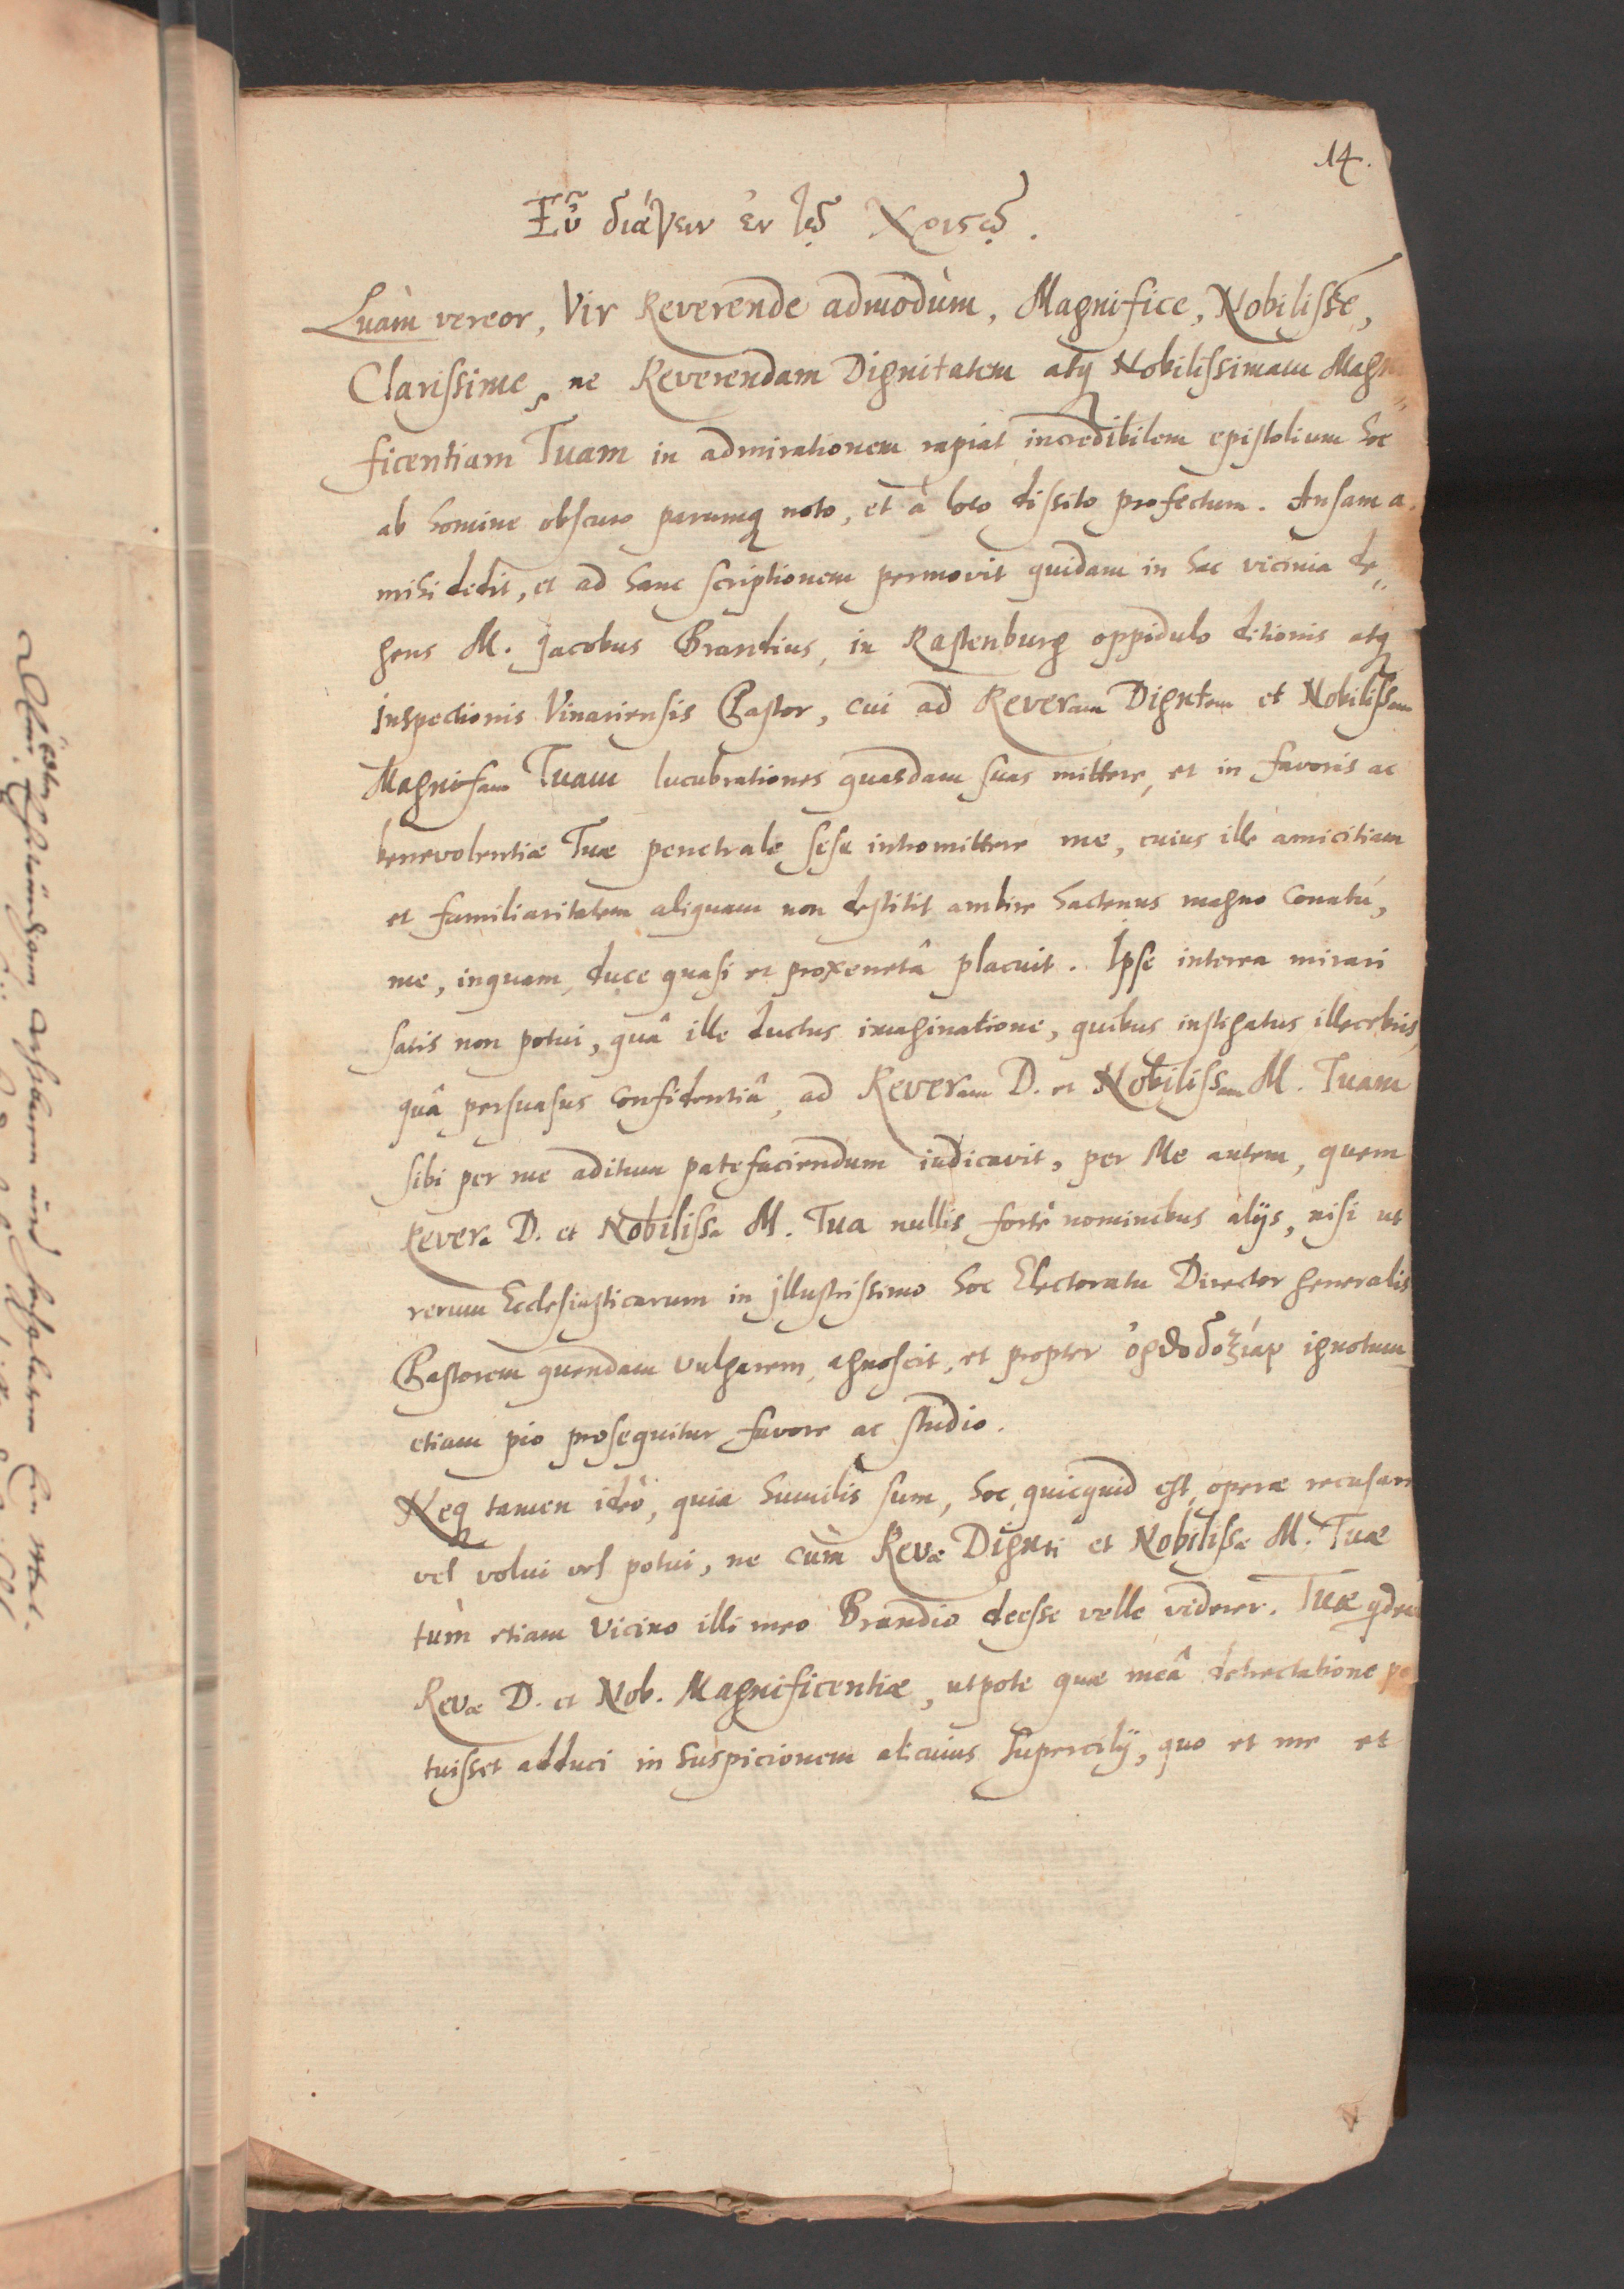 14.
Εὖ διάγειν ἐν Ἰῷ Χριστῷ.
Quàm vereor, Vir Reverende admodùm, Magnifice, Nobilisse,
Clarissime, ne Reverendam Dignitatem atq Nobilissimam Magni=
ficentiam Tuam in admirationem rapiat incredibilem epistolium hoc
ab homine obscuro parumq noto, et à loco dissito profectum. Ansam a.
mihi dedit, et ad hanc scriptionem permovit quidam in hac vicinia de=
gens M. Jacobus Brandius, in Rastenburg oppidulo ditionis atq
Inspectionis Vinariensis Pastor, cui ad Reveram Digntem et Nobilissam
Magnifam Tuam lucubrationes quasdam suas mittere, et in favoris ac
benevolentiæ Tuæ penetrale sese intromittere me, cuius ille amicitiam
et familiaritatem aliquam non destitit ambire hactenus magno conatú,
me, inquam, duce quasi et proxenetâ placuit. Ipse interea mirari
satis non potui, quâ ille ductus imaginatione, quibus instigatus illecebris,
quâ persuasus confidentiâ, ad Reveram D. et Nobilissam M. Tuam
sibi per me aditum patefaciendum iudicavit, per Me autem, quem
Revera D. et Nobilissa M. Tua nullis fortè nominibus alijs, nisi ut
rerum Ecclesiasticarum in jllustrissimo hoc Electoratu Director generalis
Pastorem quendam vulgarem, agnoscit, et propter ὀρθοδοξίαν ignotum
etiam pio prosequitur favore ac studio.
Neq tamen ideò, quia humilis sum, hoc, quicquid est, operæ recusare
vel volui vel potui, ne cùm Revæ Dignti et Nobilissæ M. Tuæ
tùm etiam Vicino illi meo Brandio deesse velle viderer. Tuæ qdem
Revæ D. et Nob. Magnificentiæ, utpote quæ meâ detrectatione po
tuisset adduci in suspicionem alicuius supercilij, quo et me et